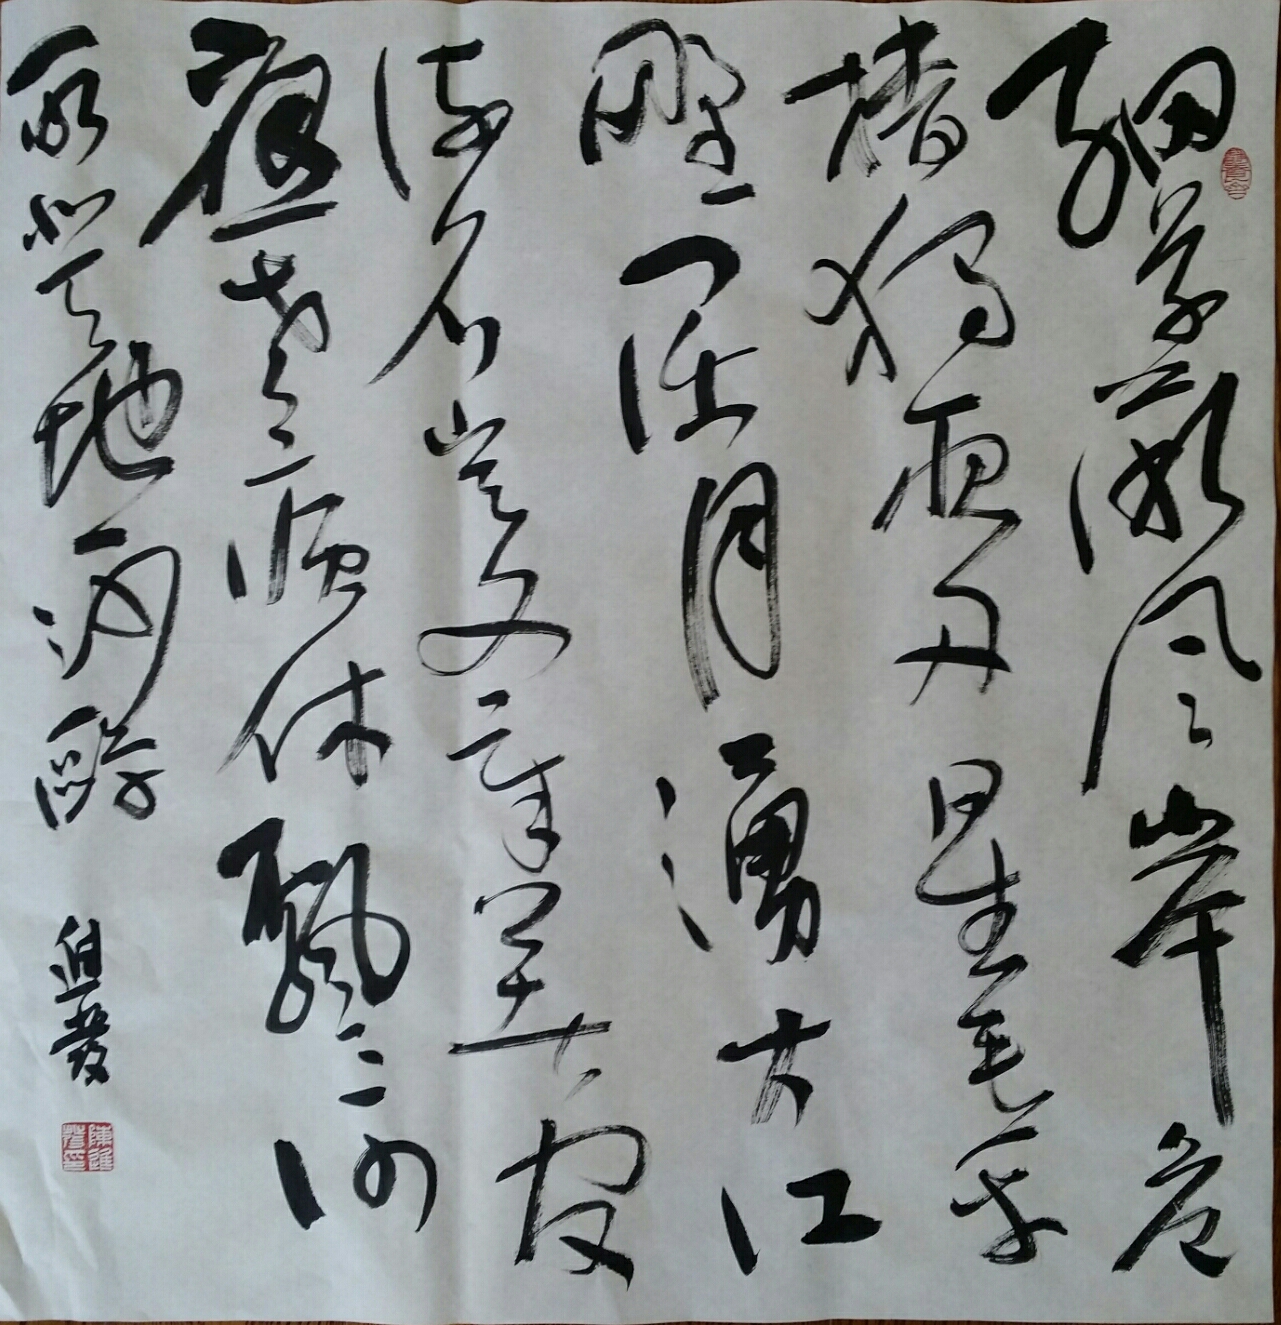 細草微風岸危
檣獨夜舟星垂平
野闊月湧大江
流名豈文章著官
應老病休飄〻何
所似天地一沙鷗
進發
陳進發印